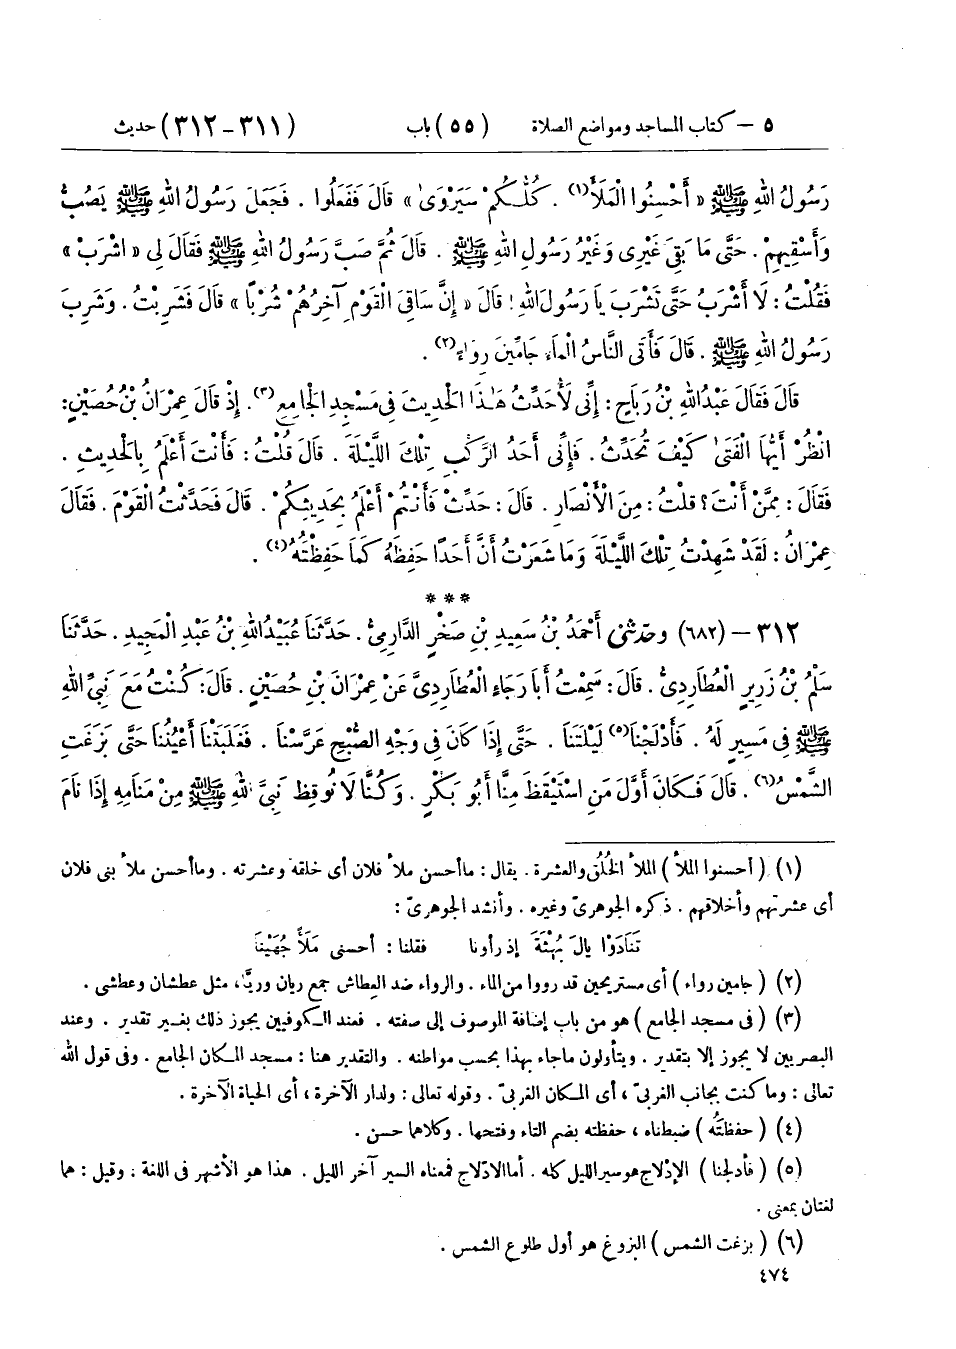 ٥ – كتاب المساجد ومواضع الصلاة (٥٥) باب (٣١١–٣١٢) حديث
رَسُولُ اللهِ ﷺ « أَحْسِنُوا الْمَلَأَ(١) . كُلُّكُمْ سَيَرْوَىٰ » قَالَ فَفَعَلُوا . فَجَعَلَ رَسُولُ اللهِ ﷺ يَصُبُّ
وَأَسْقِيهِمْ . حَتَّى مَا بَقِيَ غَيْرِى وَغَيْرُ رَسُولِ اللهِ ﷺ . قَالَ ثُمَّ صَبَّ رَسُولُ اللهِ ﷺ فَقَالَ لِى « اشْرَبْ »
فَقُلْتُ : لَا أَشْرَبُ حَتَّى تَشْرَبَ يَا رَسُولَ اللهِ ! قَالَ « إِنَّ سَاقِىَ الْقَوْمِ آخِرُهُمْ شُرْبًا » قَالَ فَشَرِبْتُ . وَشَرِبَ
رَسُولُ اللهِ ﷺ . قَالَ فَأَتَى النَّاسُ الْمَاءَ جَامِّينَ رِوَاءً(٢) .
قَالَ فَقَالَ عَبْدُ اللهِ بْنُ رَبَاحٍ : إِنِّى لَأُحَدِّثُ هَٰذَا الْحَدِيثَ فِى مَسْجِدِ الْجَامِعِ(٣) . إِذْ قَالَ عِمْرَانُ بْنُ حُصَيْنٍ :
انْظُرْ أَيُّهَا الْفَتَىٰ كَيْفَ تُحَدِّثُ . فَإِنِّى أَحَدُ الرَّكْبِ تِلْكَ اللَّيْلَةَ . قَالَ قُلْتُ : فَأَنْتَ أَعْلَمُ بِالْحَدِيثِ .
فَقَالَ : مِمَّنْ أَنْتَ ؟ قُلْتُ : مِنَ الْأَنْصَارِ . قَالَ : حَدِّثْ فَأَنْتُمْ أَعْلَمُ بِحَدِيثِكُمْ . قَالَ فَحَدَّثْتُ الْقَوْمَ . فَقَالَ
عِمْرَانُ : لَقَدْ شَهِدْتُ تِلْكَ اللَّيْلَةَ وَمَا شَعَرْتُ أَنَّ أَحَدًا حَفِظَهُ كَمَا حَفِظْتُهُ(٤) .
***
٣١٢ – (٦٨٢) وحدثنى أَحْمَدُ بْنُ سَعِيدِ بْنِ صَخْرٍ الدَّارِمِىُّ . حَدَّثَنَا عُبَيْدُ اللهِ بْنُ عَبْدِ الْمَجِيدِ . حَدَّثَنَا
سَلْمُ بْنُ زَرِيرٍ الْعُطَارِدِىُّ . قَالَ : سَمِعْتُ أَبَا رَجَاءٍ الْعُطَارِدِىَّ عَنْ عِمْرَانَ بْنِ حُصَيْنٍ . قَالَ : كُنْتُ مَعَ نَبِىِّ اللهِ
ﷺ فِى مَسِيرٍ لَهُ . فَأَدْلَجْنَا(٥) لَيْلَتَنَا . حَتَّى إِذَا كَانَ فِى وَجْهِ الصُّبْحِ عَرَّسْنَا . فَغَلَبَتْنَا أَعْيُنُنَا حَتَّى بَزَغَتِ
الشَّمْسُ(٦) . قَالَ فَكَانَ أَوَّلَ مَنِ اسْتَيْقَظَ مِنَّا أَبُو بَكْرٍ . وَكُنَّا لَا نُوقِظُ نَبِىَّ اللهِ ﷺ مِنْ مَنَامِهِ إِذَا نَامَ
(١) ( أحسنوا الملأ ) الملأ الخُلُق والعشرة . يقال : ما أحسن ملأ فلان أى خلقه وعشرته . وما أحسن ملأ بنى فلان
أى عشرتهم وأخلاقهم . ذكره الجوهرىّ وغيره . وأنشد الجوهرىّ :
تَنَادَوْا يالَ بُهْثَةَ إذ رأونا فقلنا : أحسنى مَلَأً جُهَيْنَا
(٢) ( جامين رواء ) أى مستريحين قد رووا من الماء . والرواء ضد العطاش جمع ريان وريّا ، مثل عطشان وعطشى .
(٣) ( فى مسجد الجامع ) هو من باب إضافة الموصوف إلى صفته . فعند الكوفيين يجوز ذلك بغير تقدير . وعند
البصريين لا يجوز إلا بتقدير . ويتأولون ماجاء بهذا بحسب مواطنه . والتقدير هنا : مسجد المكان الجامع . وفى قول الله
تعالى : وما كنت بجانب الغربىّ ، أى المكان الغربىّ . وقوله تعالى : ولدار الآخرة ، أى الحياة الآخرة .
(٤) ( حفظته ) ضبطناه ، حفظته بضم التاء وفتحها . وكلاهما حسن .
(٥) ( فأدلجنا ) الإدْلاج هو سير الليل كله . أما الادّلاج فمعناه السير آخر الليل . هذا هو الأشهر فى اللغة . وقيل : هما
لغتان بمعنى .
(٦) ( بزغت الشمس ) البزوغ هو أول طلوع الشمس .
٤٧٤